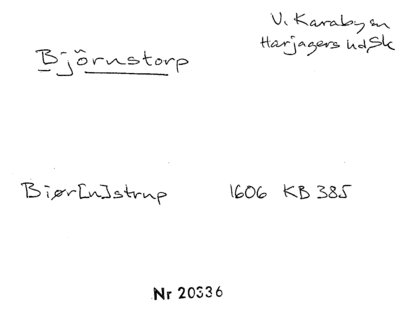 V. Karaby sn
Harjagers hd, Sk
Björnstorp
Biør[n]strup 1606 KB 385
Nr 20336